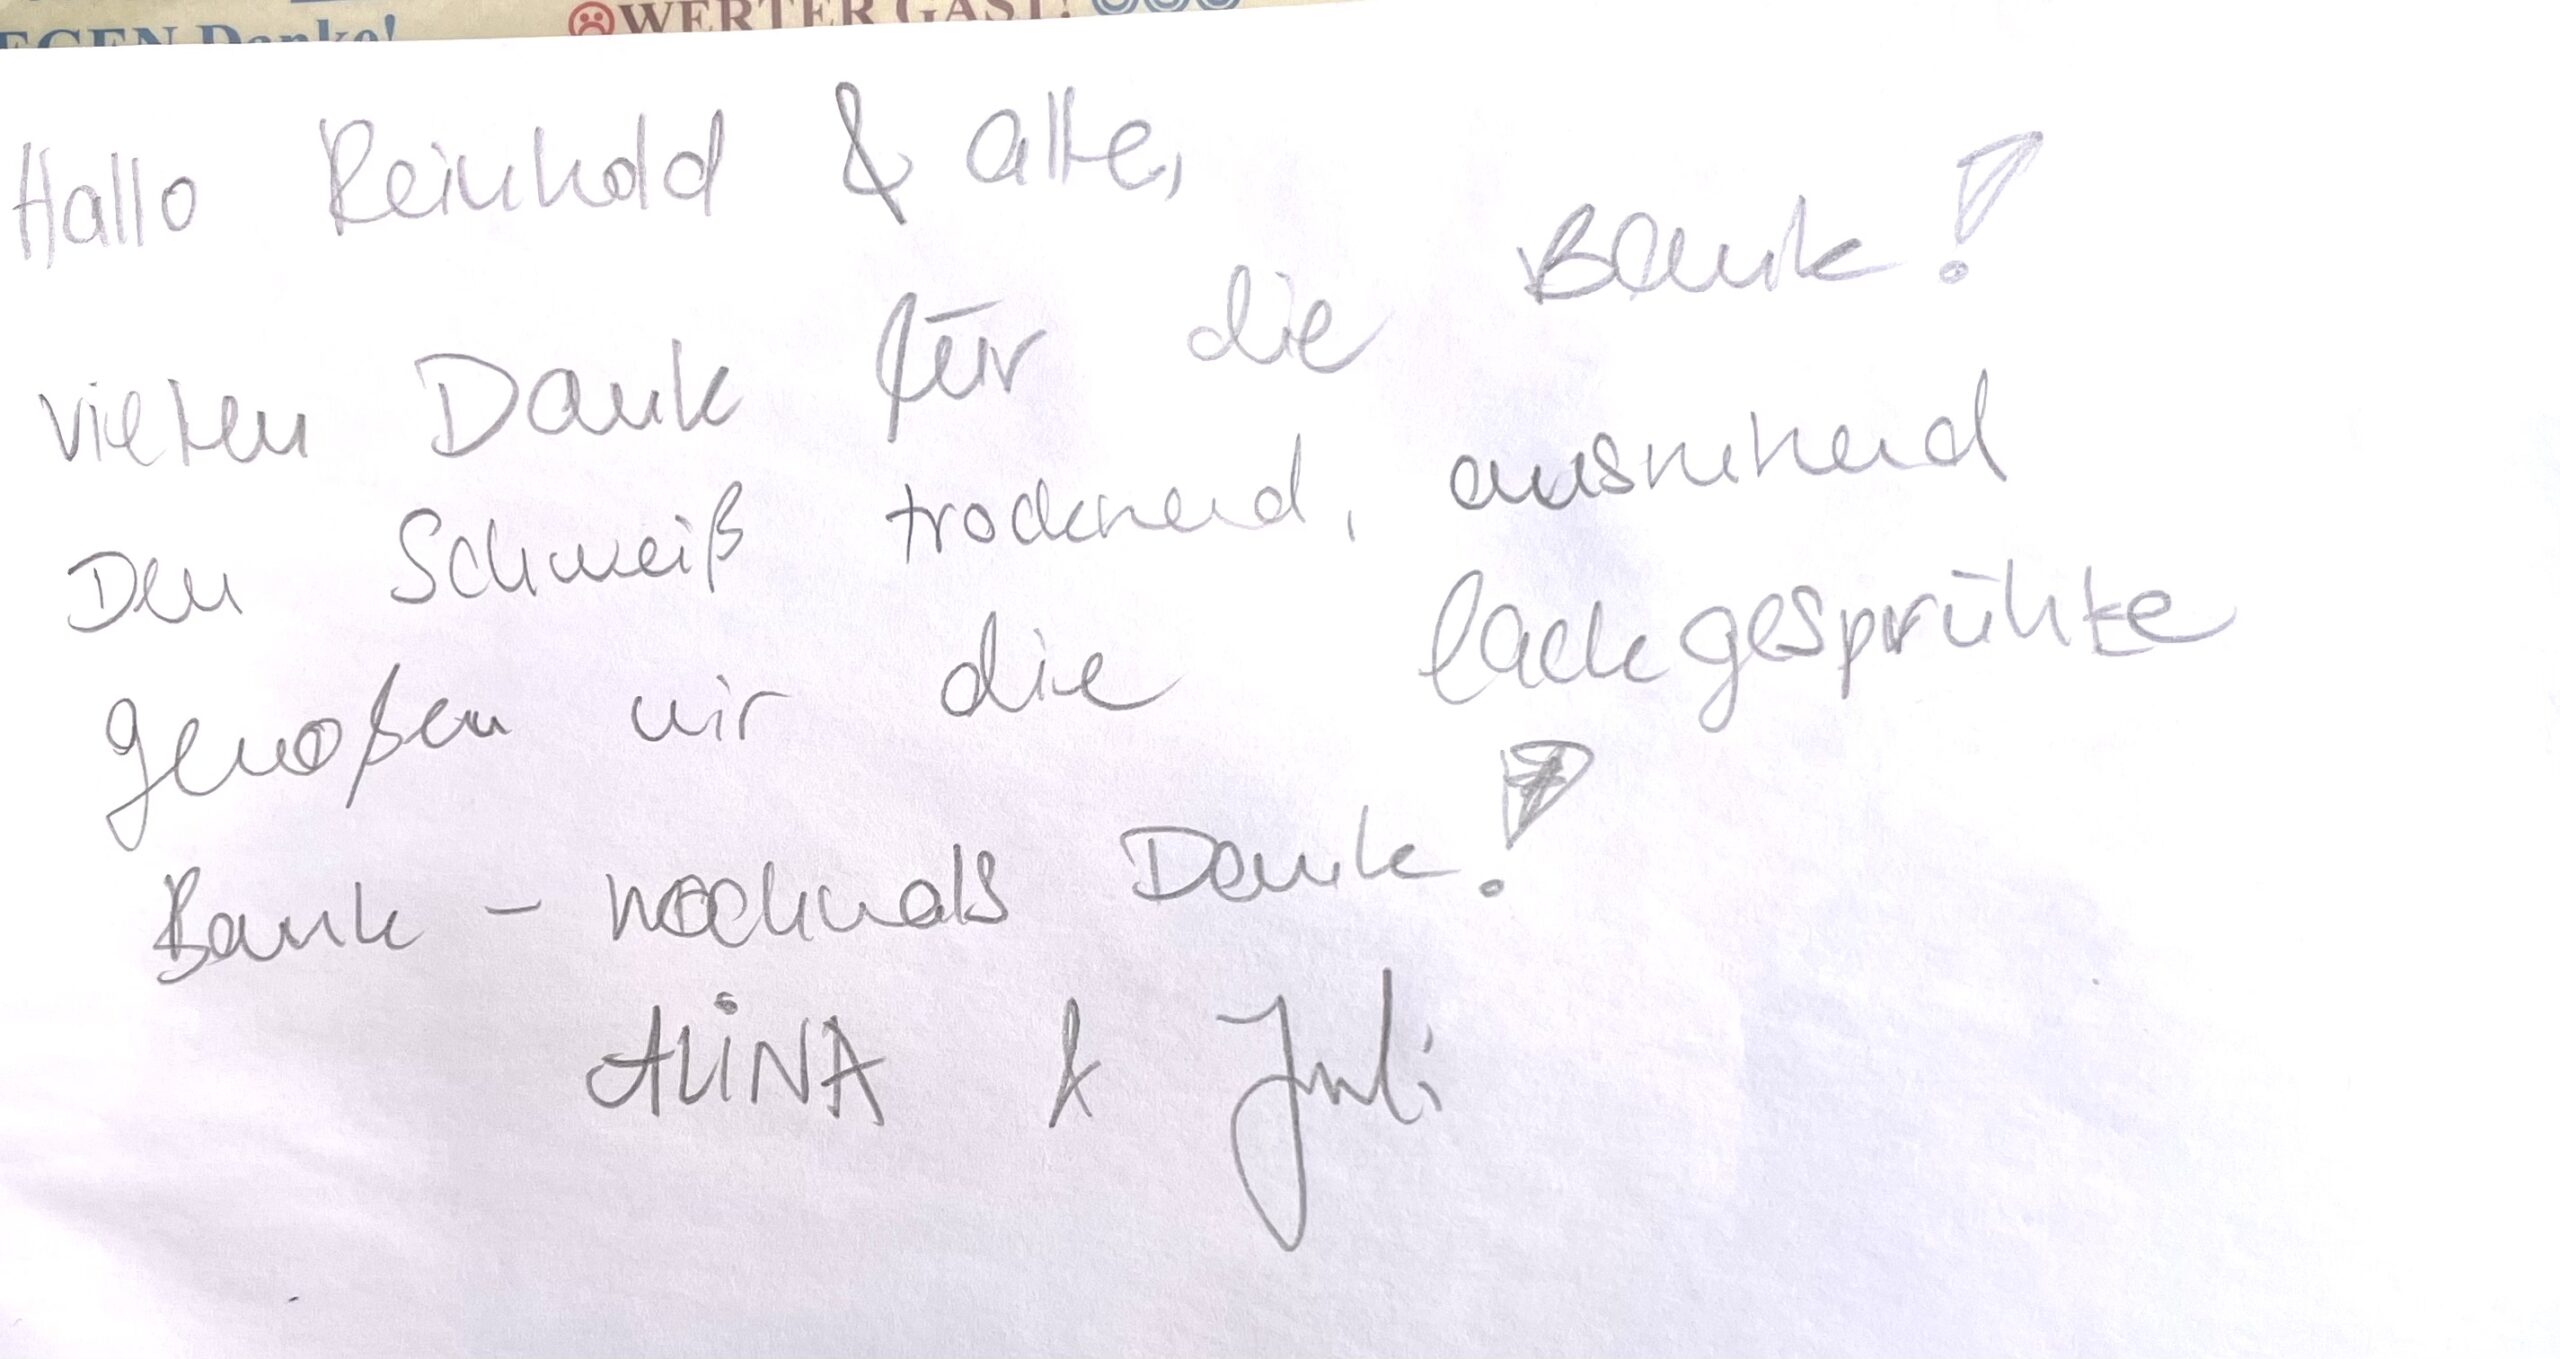 EGEN Danke! WERTER GAST!
Hallo Reinhold & alle,
vielen Dank für die Bank!
Den Schweiß trocknend, ausruhend
genoßen wir die lackgesprühte
Bank – nochmals Dank!
ALiNA & Juli